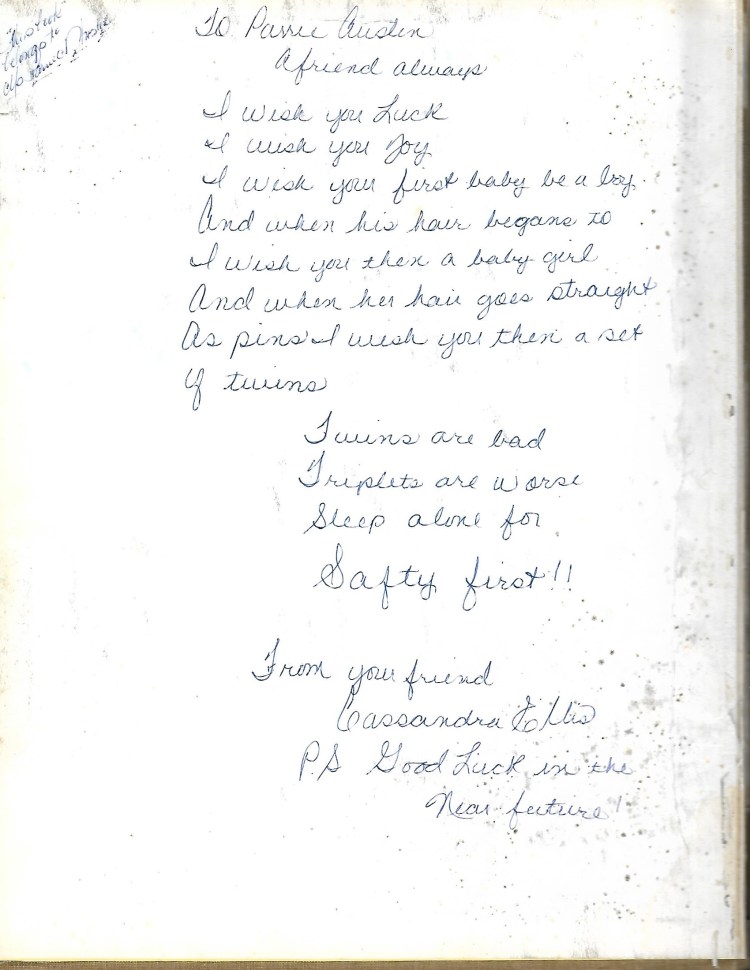 To Parrie Austin
A friend always
I wish you Luck
I wish you Joy
I wish your first baby be a boy.
And when his hair begans to
I wish you then a baby girl
And when her hair goes straight
As pins I wish you then a set
Of twins
Twins are bad
Triplets are worse
Sleep alone for
Safty first!!
From your friend
Cassandra Ellis
P.S Good Luck in the
Near future!
belongs to